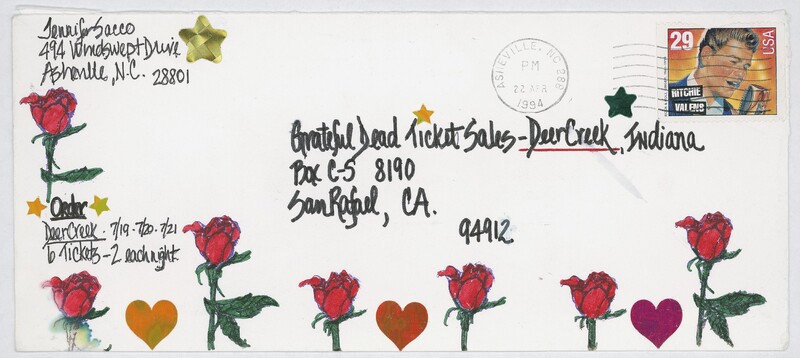 Jennifer Sacco
494 Windswept Drive
Asheville, N.C. 28801
ASHEVILLE, NC 288
PM
22 APR
1994
29
USA
RITCHIE
VALENS
Grateful Dead Ticket Sales - Deer Creek, Indiana
Box C-S 8190
San Rafael, CA.
94912
Order
Deer Creek - 7/19 - 7/20 - 7/21
6 Tickets - 2 each night